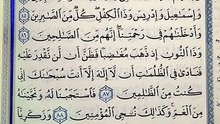 وَإِسْمَٰعِيلَ وَإِدْرِيسَ وَذَا ٱلْكِفْلِ كُلٌّ مِّنَ ٱلصَّٰبِرِينَ ٨٥
وَأَدْخَلْنَٰهُمْ فِي رَحْمَتِنَآ إِنَّهُم مِّنَ ٱلصَّٰلِحِينَ ٨٦
وَذَا ٱلنُّونِ إِذ ذَّهَبَ مُغَٰضِبًا فَظَنَّ أَن لَّن نَّقْدِرَ عَلَيْهِ
فَنَادَىٰ فِي ٱلظُّلُمَٰتِ أَن لَّآ إِلَٰهَ إِلَّآ أَنتَ سُبْحَٰنَكَ إِنِّي
كُنتُ مِنَ ٱلظَّٰلِمِينَ ٨٧ فَٱسْتَجَبْنَا لَهُۥ وَنَجَّيْنَٰهُ
مِنَ ٱلْغَمِّ وَكَذَٰلِكَ نُۨجِي ٱلْمُؤْمِنِينَ ٨٨ وَزَكَرِيَّآ